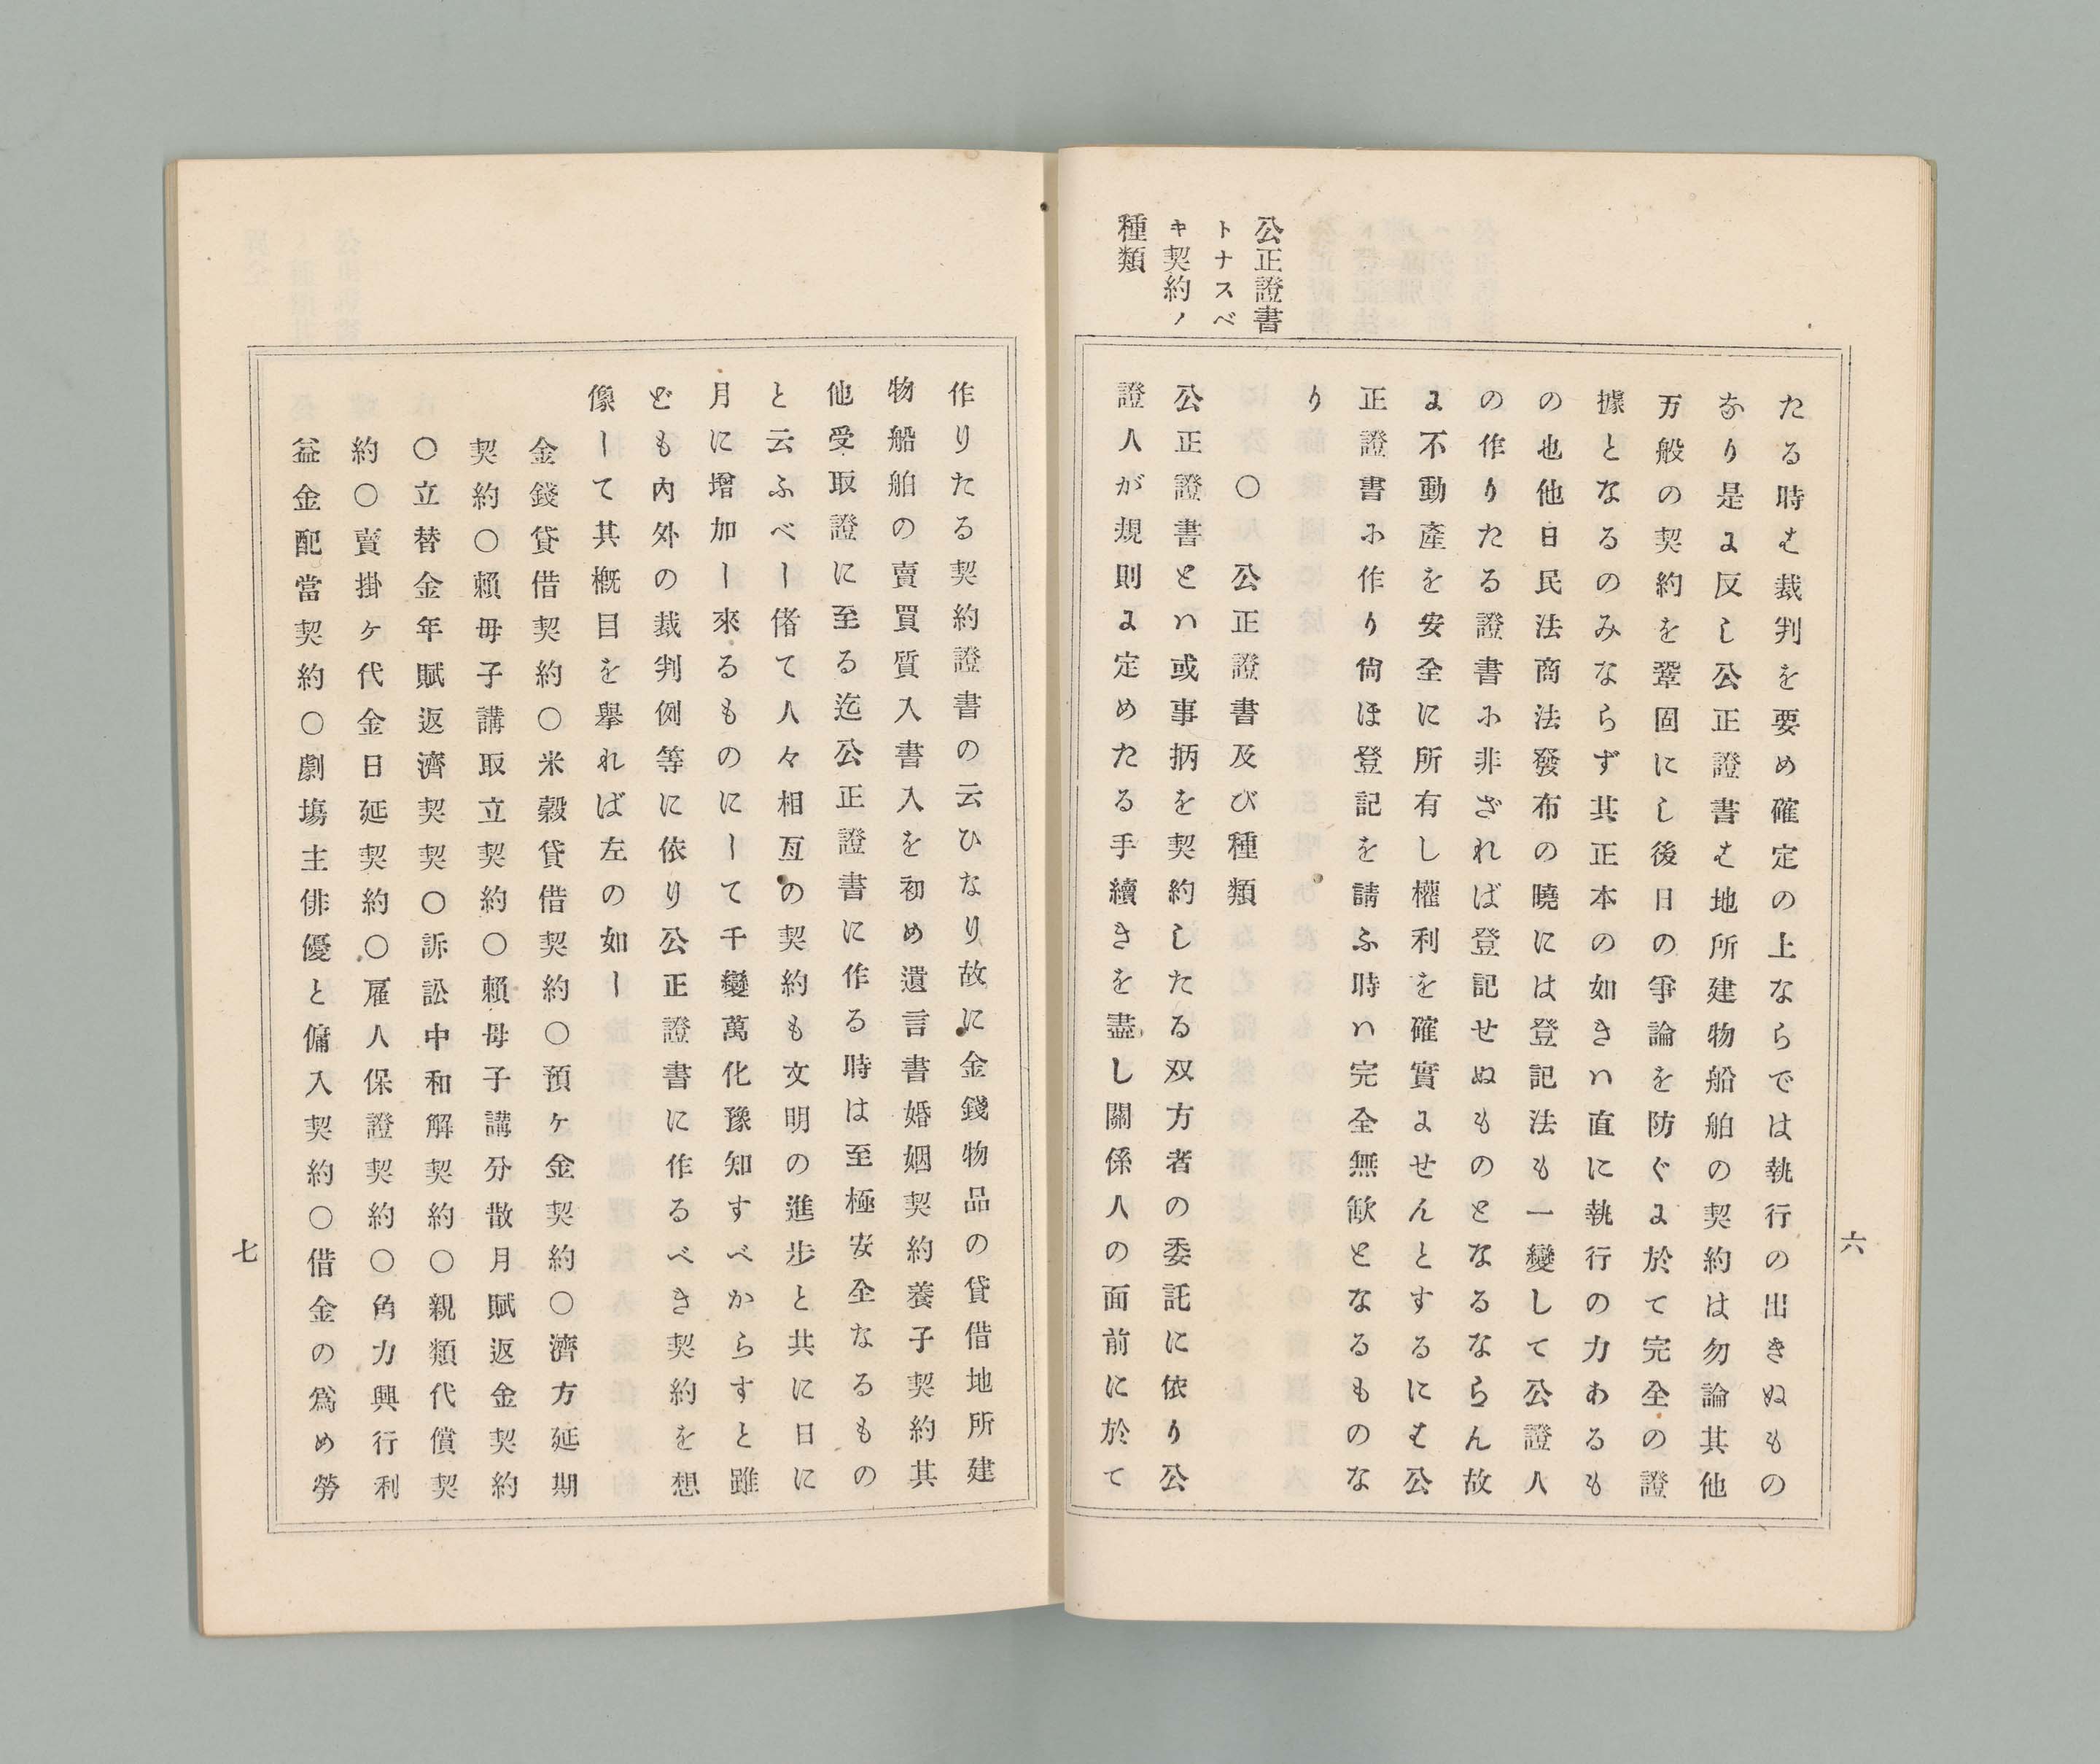 たる時む裁判を要め確定の上ならでは執行の出きぬもの
なり是よ反し公正證書む地所建物船舶の契約は勿論其他
万般の契約を鞏固にし後日の爭論を防ぐよ於て完全の證
據となるのみならず其正本の如きハ直に執行の力あるも
の也他日民法商法發布の曉には登記法も一變して公證人
の作りたる證書ふ非ざれば登記せぬものとなるならん故
よ不動產を安全に所有し權利を確實よせんとするにむ公
正證書ふ作り尙ほ登記を請ふ時ハ完全無歉となるものな
り
公正證書
トナスベ
キ契約ノ
種類
〇公正證書及び種類
公正證書とハ或事柄を契約したる双方者の委託に依り公
證人が規則よ定めたる手續きを盡し關係人の面前に於て
六
作りたる契約證書の云ひなり故に金錢物品の貸借地所建
物船舶の賣買質入書入を初め遺言書婚姻契約養子契約其
他受取證に至る迄公正證書に作る時は至極安全なるもの
と云ふべー偖て人々相互の契約も文明の進步と共に日に
月に增加ー來るものにーて千變萬化豫知すべからすと雖
ども內外の裁判例等に依り公正證書に作るべき契約を想
像ーて其槪目を擧れば左の如ー
金錢貸借契約〇米穀貸借契約〇預ヶ金契約〇濟方延期
契約〇賴母子講取立契約〇賴母子講分散月賦返金契約
〇立替金年賦返濟契契〇訴訟中和解契約〇親類代償契
約〇賣掛ヶ代金日延契約〇雇人保證契約〇角力興行利
益金配當契約〇劇塲主俳優と傭入契約〇借金の爲め勞
七